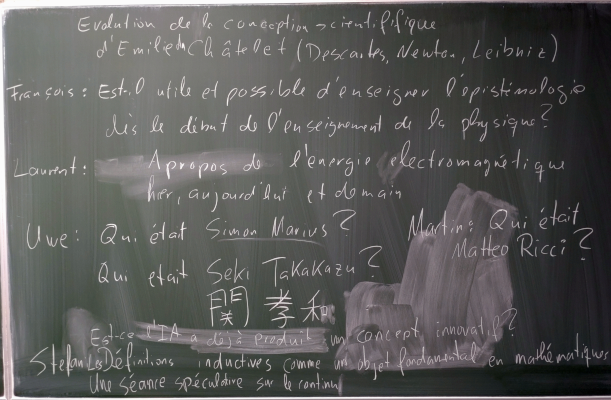 Evolution de la conception scientififique
d'Emilie du Châtelet (Descartes, Newton, Leibniz)
François : Est-il utile et possible d'enseigner l'épistémologie
dès le début de l'enseignement de la physique ?
Laurent : A propos de l'énergie electromagnétique
hier, aujourd'hui et demain
Uwe : Qui était Simon Marius ?
Qui etait Seki Takakazu ?
関 孝 和
Martin : Qui était
Matteo Ricci ?
Est-ce l'IA a déjà produit un concept innovatif ?
Stefan Les Définitions inductives comme un objet fondamental en mathématiques
Une séance spéculative sur le continu